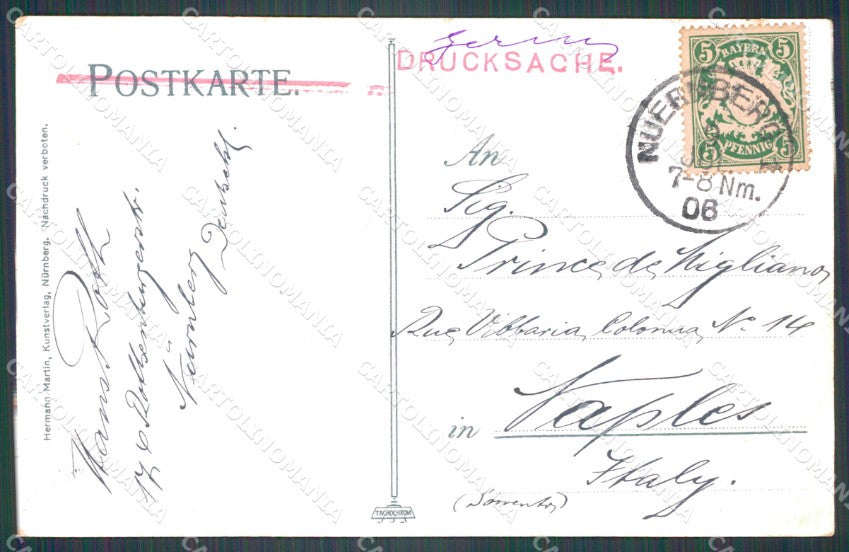 POSTKARTE.
DRUCKSACHE.
5 BAYERN 5
5 PFENNIG 5
NUERNBERG
JUL
7-8 Nm.
06
An
Sig.
Prince de Migliano
Rue Vittoria Colonna No. 14
in Naples
Italy.
(Sorrento)
Hans Roth
Rothenburgerstr.
Nürnberg
Deutschl.
Hermann Martin, Kunstverlag, Nürnberg. Nachdruck verboten.
TACHOCHROM
CARTOLINOMANIA